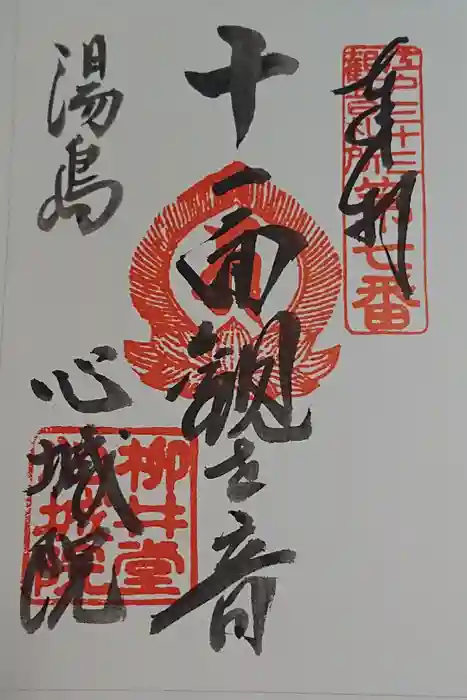 奉拝
江戸三十三観音札所第七番
十一面観世音
湯島
心城院
柳井堂
心城院